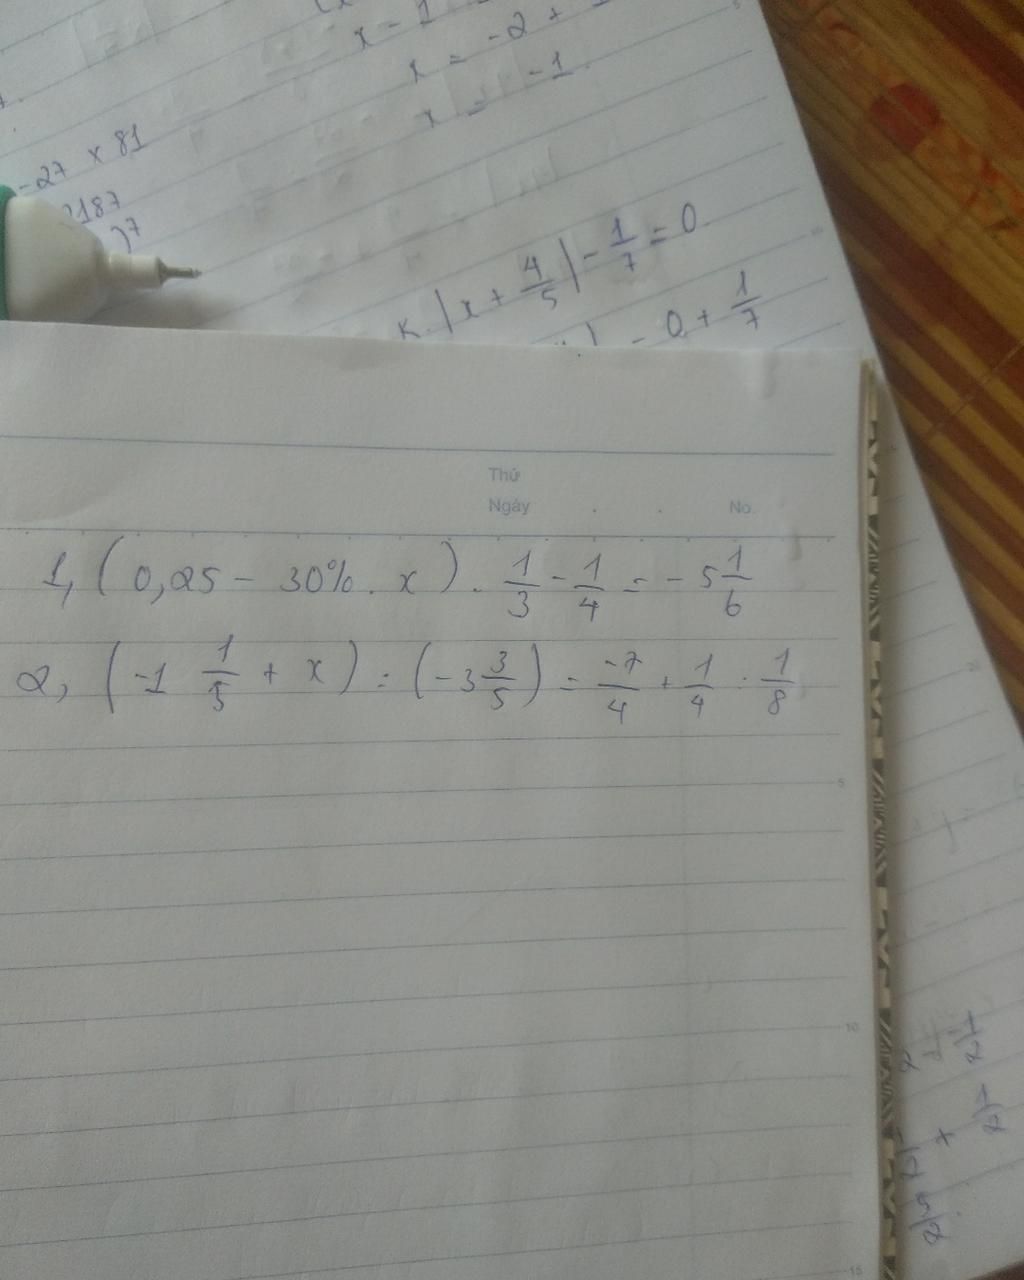 x - 1
x = -2 +
x = -1.
-27 x 81
2187
)⁷
K. |x + 4/5| - 1/7 = 0
| = 0 + 1/7
Thứ
Ngày . . No.
1, ( 0,25 - 30% . x ) . 1/3 - 1/4 = - 5 1/6
2, ( -1 1/5 + x ) : ( -3 3/5 ) = -7/4 + 1/4 : 1/8
5
10
15